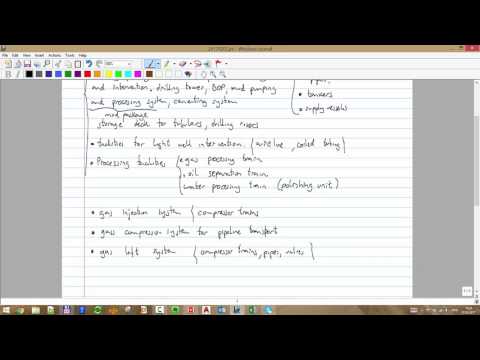 File Edit View Insert Actions Tools Help
and intervention. drilling tower, BOP, mud pumping
and processing system, cementing system
mud package
storage deck for tubulars, drilling risers
• tankers
• supply vessels
• facilities for light well intervention. (wireline, coiled tubing)
• Processing facilities
• gas processing train
• oil separation train
water processing train (polishing unit)
• gas injection system { compressor trains
• gas compression system for pipeline transport
• gas lift system { compressor trains, pipes, valves }